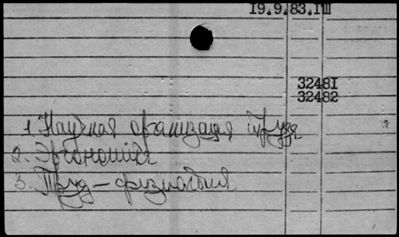 19.9.83.1Ш
32481
32482
1. Научная организация труда
2. Эргономика
3. Труд — физиология